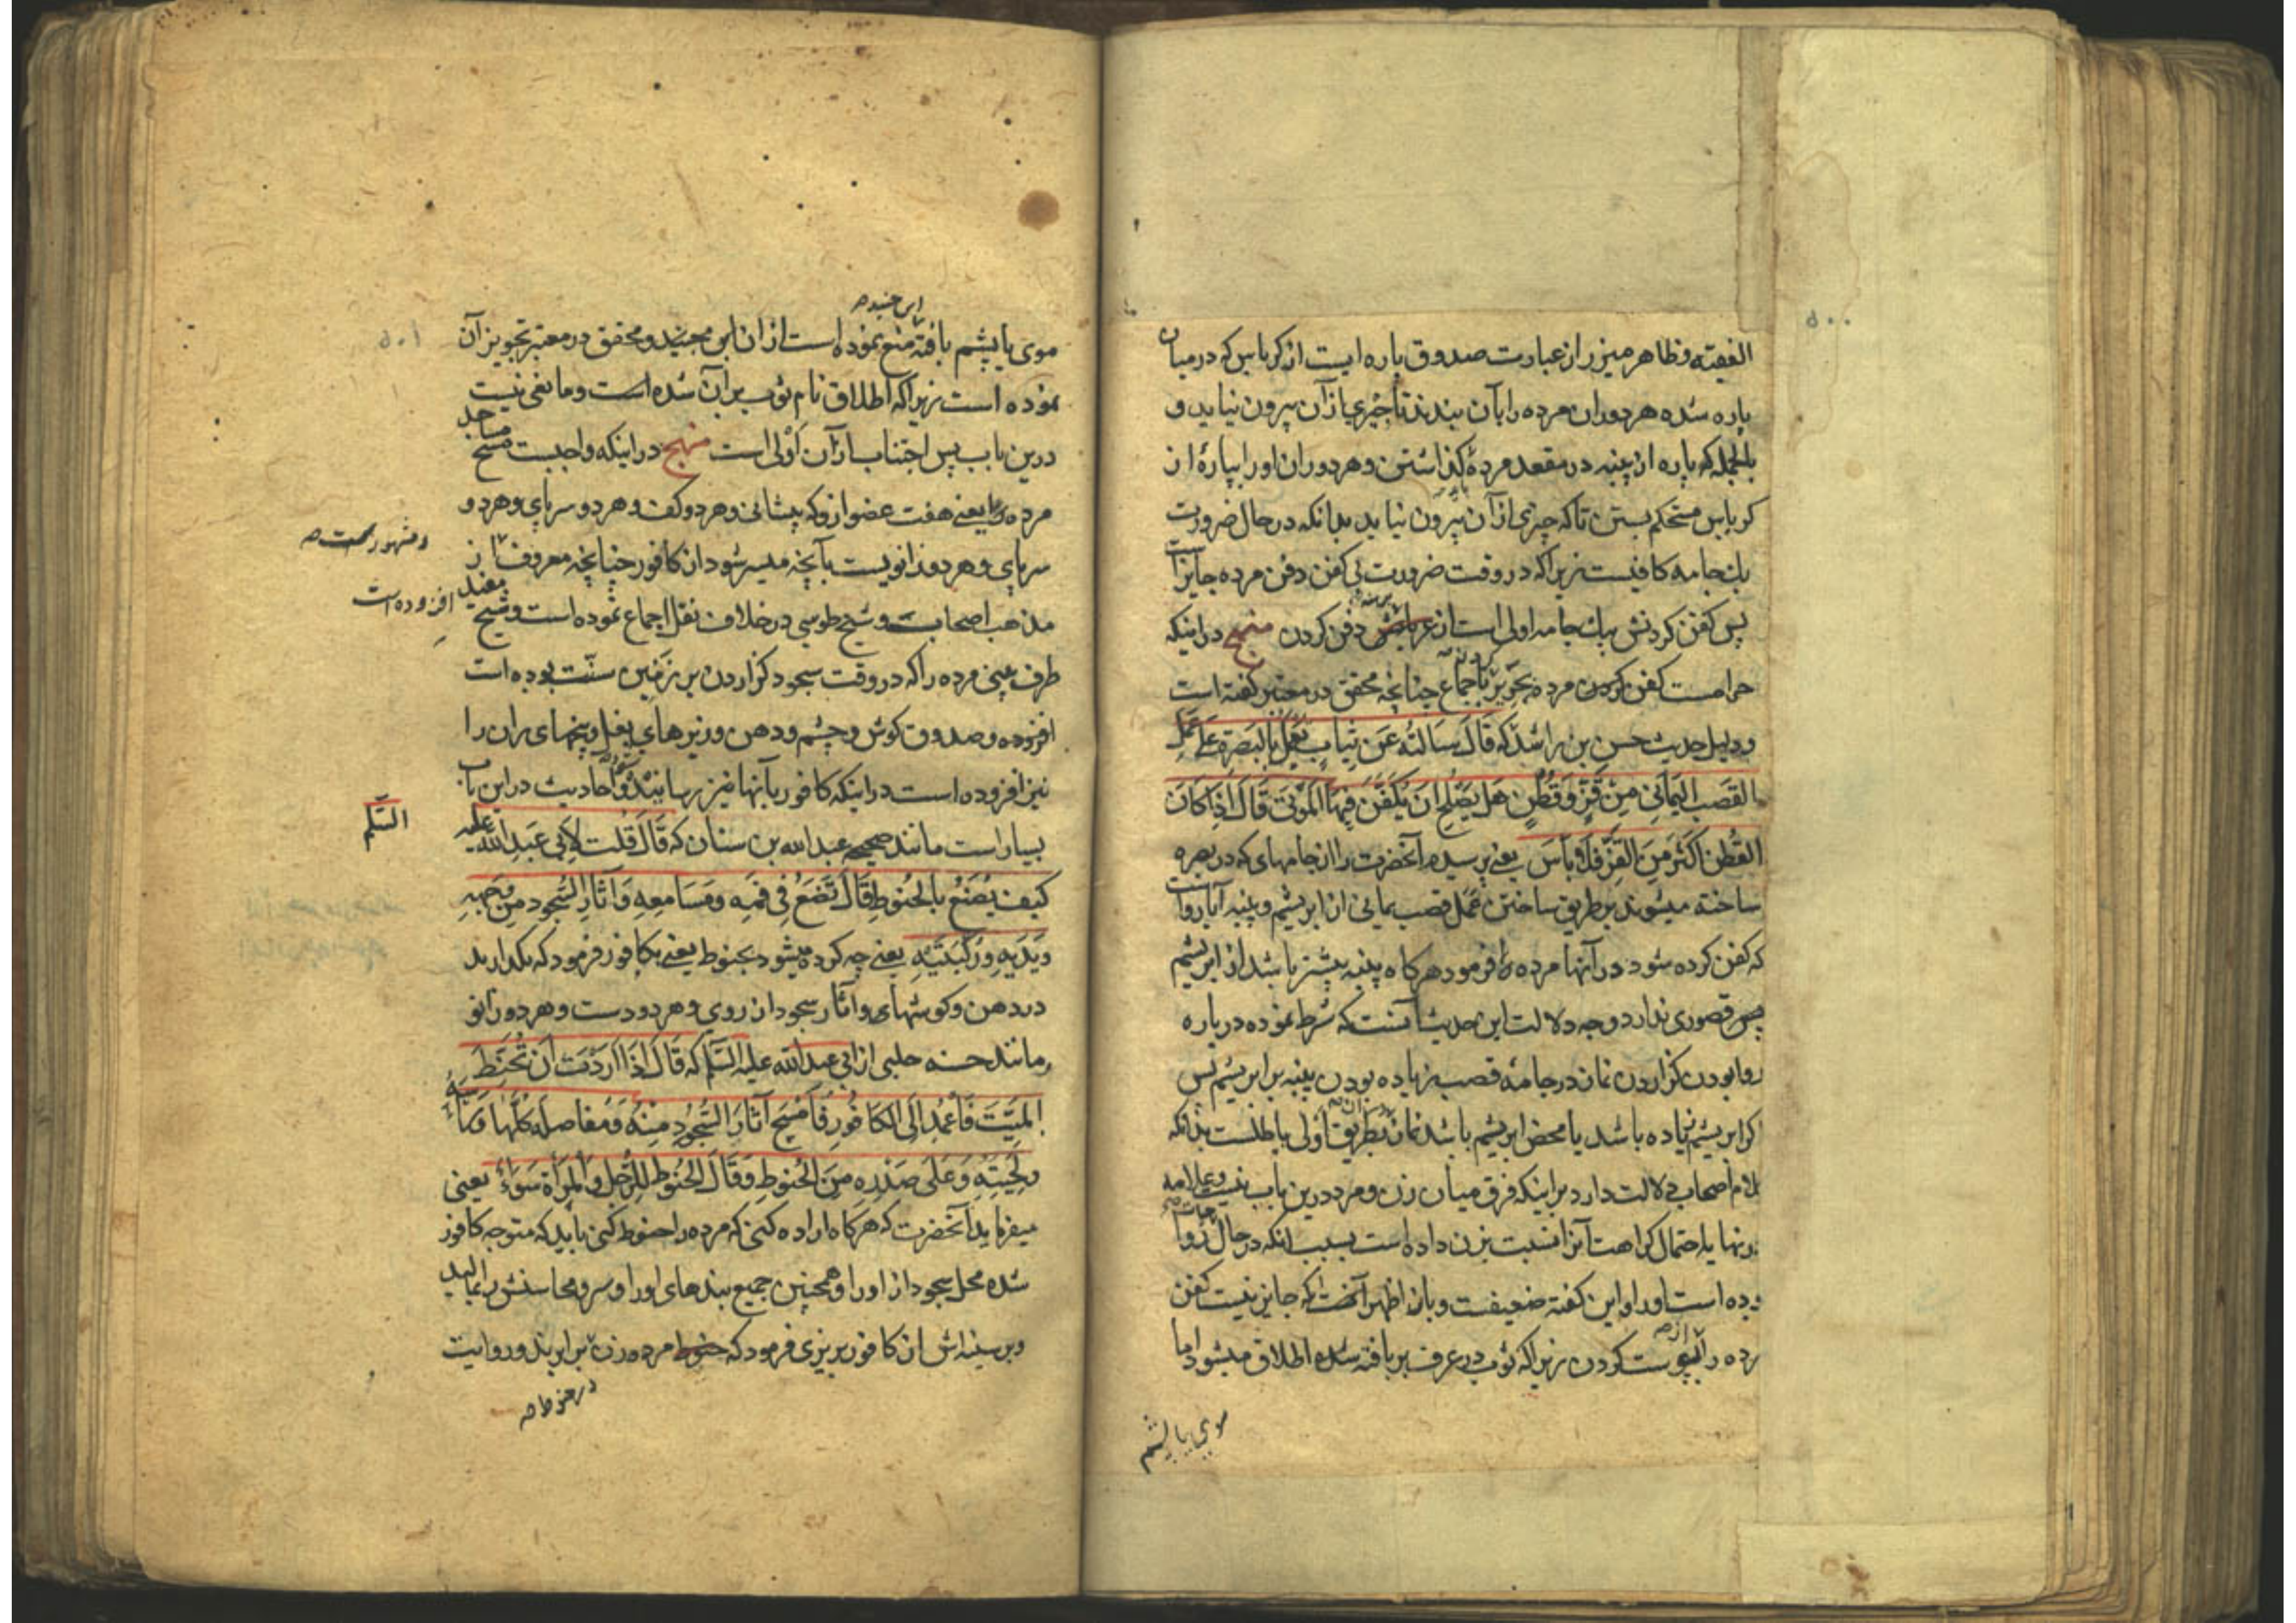 ۵۰۰
الفقیه و ظاهر میزر از عبارت صدوق پاره ایست از کرباس که در میان
پاره شده هر دو ران مرده را بآن بندند تا چیزی از آن بیرون نیاید و
بالجمله که پاره از پنبه در مقعد مرده گذاشتن و هر دو ران او را بپارهٔ از
کرباس مستحکم بستن تا که چیزی از آن بیرون نیاید بدانکه در حال ضرورت
یک جامه کافیست زیرا که در وقت ضرورت بی کفن دفن مرده جایز است
پس کفن کردنش بیک جامه اولی است از برهنه دفن کردن منهج در اینکه
حرامست کفن کردن مرده بحریر باجماع چنانچه محقق در معتبر گفته است
و دلیل حدیث حسن بن راشد که قَالَ سَالتُه عَن ثِیَابٍ یُعمَل بِالبَصرَةِ عَلَی عَمَلِ
القَصَبِ الیَمَانِی مِن قَزٍّ وَقُطُنٍ هَل یَصلُح اَن یُکَفَّن فِیهَا المَوتَی قَالَ اِذَا کَانَ
القُطن اَکثَر مِنَ القَزِّ فَلَا بَأسَ یعنی پرسیدم آنحضرت را از جامهای که در بصره
ساخته میشوند بر طریق ساختن عمل قصب یمانی از ابریشم و پنبه آیا رواست
که کفن کرده شود در آنها مرده را فرمود هرگاه پنبه بیشتر باشد از ابریشم
پس قصوری ندارد وجه دلالت این حدیث آنست که شرط نموده در باره
روا بودن گزاردن نماز در جامهٔ قصب زیاده بودن پنبه بر ابریشم پس
اگر ابریشم زیاده باشد یا محض ابریشم باشد نماز در آن بطریق اولی باطلست بدانکه
کلام اصحاب دلالت دارد بر اینکه فرق میان زن و مرد درین باب نیست و علامه
در نهایه احتمال کراهت آنرا نسبت بزن داده است بسبب آنکه در حال حیات روا
بوده است او را و این گفته ضعیفست و بازاظهر آنست که جایز نیست کفن
مرده را از پوست کردن زیرا که ثوب در عرف بر بافته شده اطلاق میشود اما
موی یا پشم
۵۰۱
موی یا پشم بافته منع نموده است از ان ابن جنید و محقق در معتبر تجویز آن
نموده است زیرا که اطلاق نام ثوب بر آن شده است و مانعی نیست
درین باب پس اجتناب از آن اَولی است منهج در اینکه واجبست مسح مساجد
مرده را یعنی هفت عضو از و که پیشانی و هر دو کف و هر دو سر پای و هر دو
سر پای و هر دو زانویست بآنچه میسر شود از کافور چنانچه معروف از
و مشهور است صح
مذهب اصحابست و شیخ طوسی در خلاف نقل اجماع نموده است و شیخ مفید
افزوده است
طرف بینی مرده را که در وقت سجود گزاردن بر زمین سنّت بوده است
افزوده و صدوق گوش و چشم و دهن و زیرهای بغل و بیخهای ران را
نیز افزوده است در اینکه کافور بآنها نیز رسانیده شود و احادیث در این باب
بسیار است مانند صحیحه عبدالله بن سنان که قَالَ قُلت لِاَبِی عَبدِ اللّه علیه
السَّلم
کَیفَ یُصنَعُ بِالحَنُوطِ قَالَ تَضَعُ فِی فَمِه وَ مَسَامِعِه وَ آثَارِ السُّجُود مِن وَجهِه
وَیَدَیهِ وَ رُکبَتَیهِ یعنی چه کرده میشود بحنوط یعنی بکافور فرمود که بگذارید
در دهن و گوشهای و آثار سجود از روی و هر دو دست و هر دو زانو
و مانند حسنه حلبی از ابی عبدالله علیه السّلم که قَالَ اِذَا اَرَدتَ اَن تُحَنِّطَ
المَیِّتَ فَاعمُد اِلَی الکَافُورِ فَامسَح آثَارَ السُّجُودِ مِنهُ وَ مَفَاصِلَه کُلَّهَا وَ رَأسَهُ
وَ لِحیَتِهِ وَ عَلَی صَدرِه مِنَ الحَنُوطِ وَ قَالَ الحَنُوط لِلرَّجُل وَ المَرأَة سَوَاءٌ یعنی
میفرماید آنحضرت که هرگاه اراده کنی که مرده را حنوط کنی باید که متوجه کافور
شده محل سجود از او را و همچنین جمیع بندهای او را و سر و محاسنش را بمالید
و بر سینه اش از کافور بریزی فرمود که حنوط مرد و زن برابرند و روایت